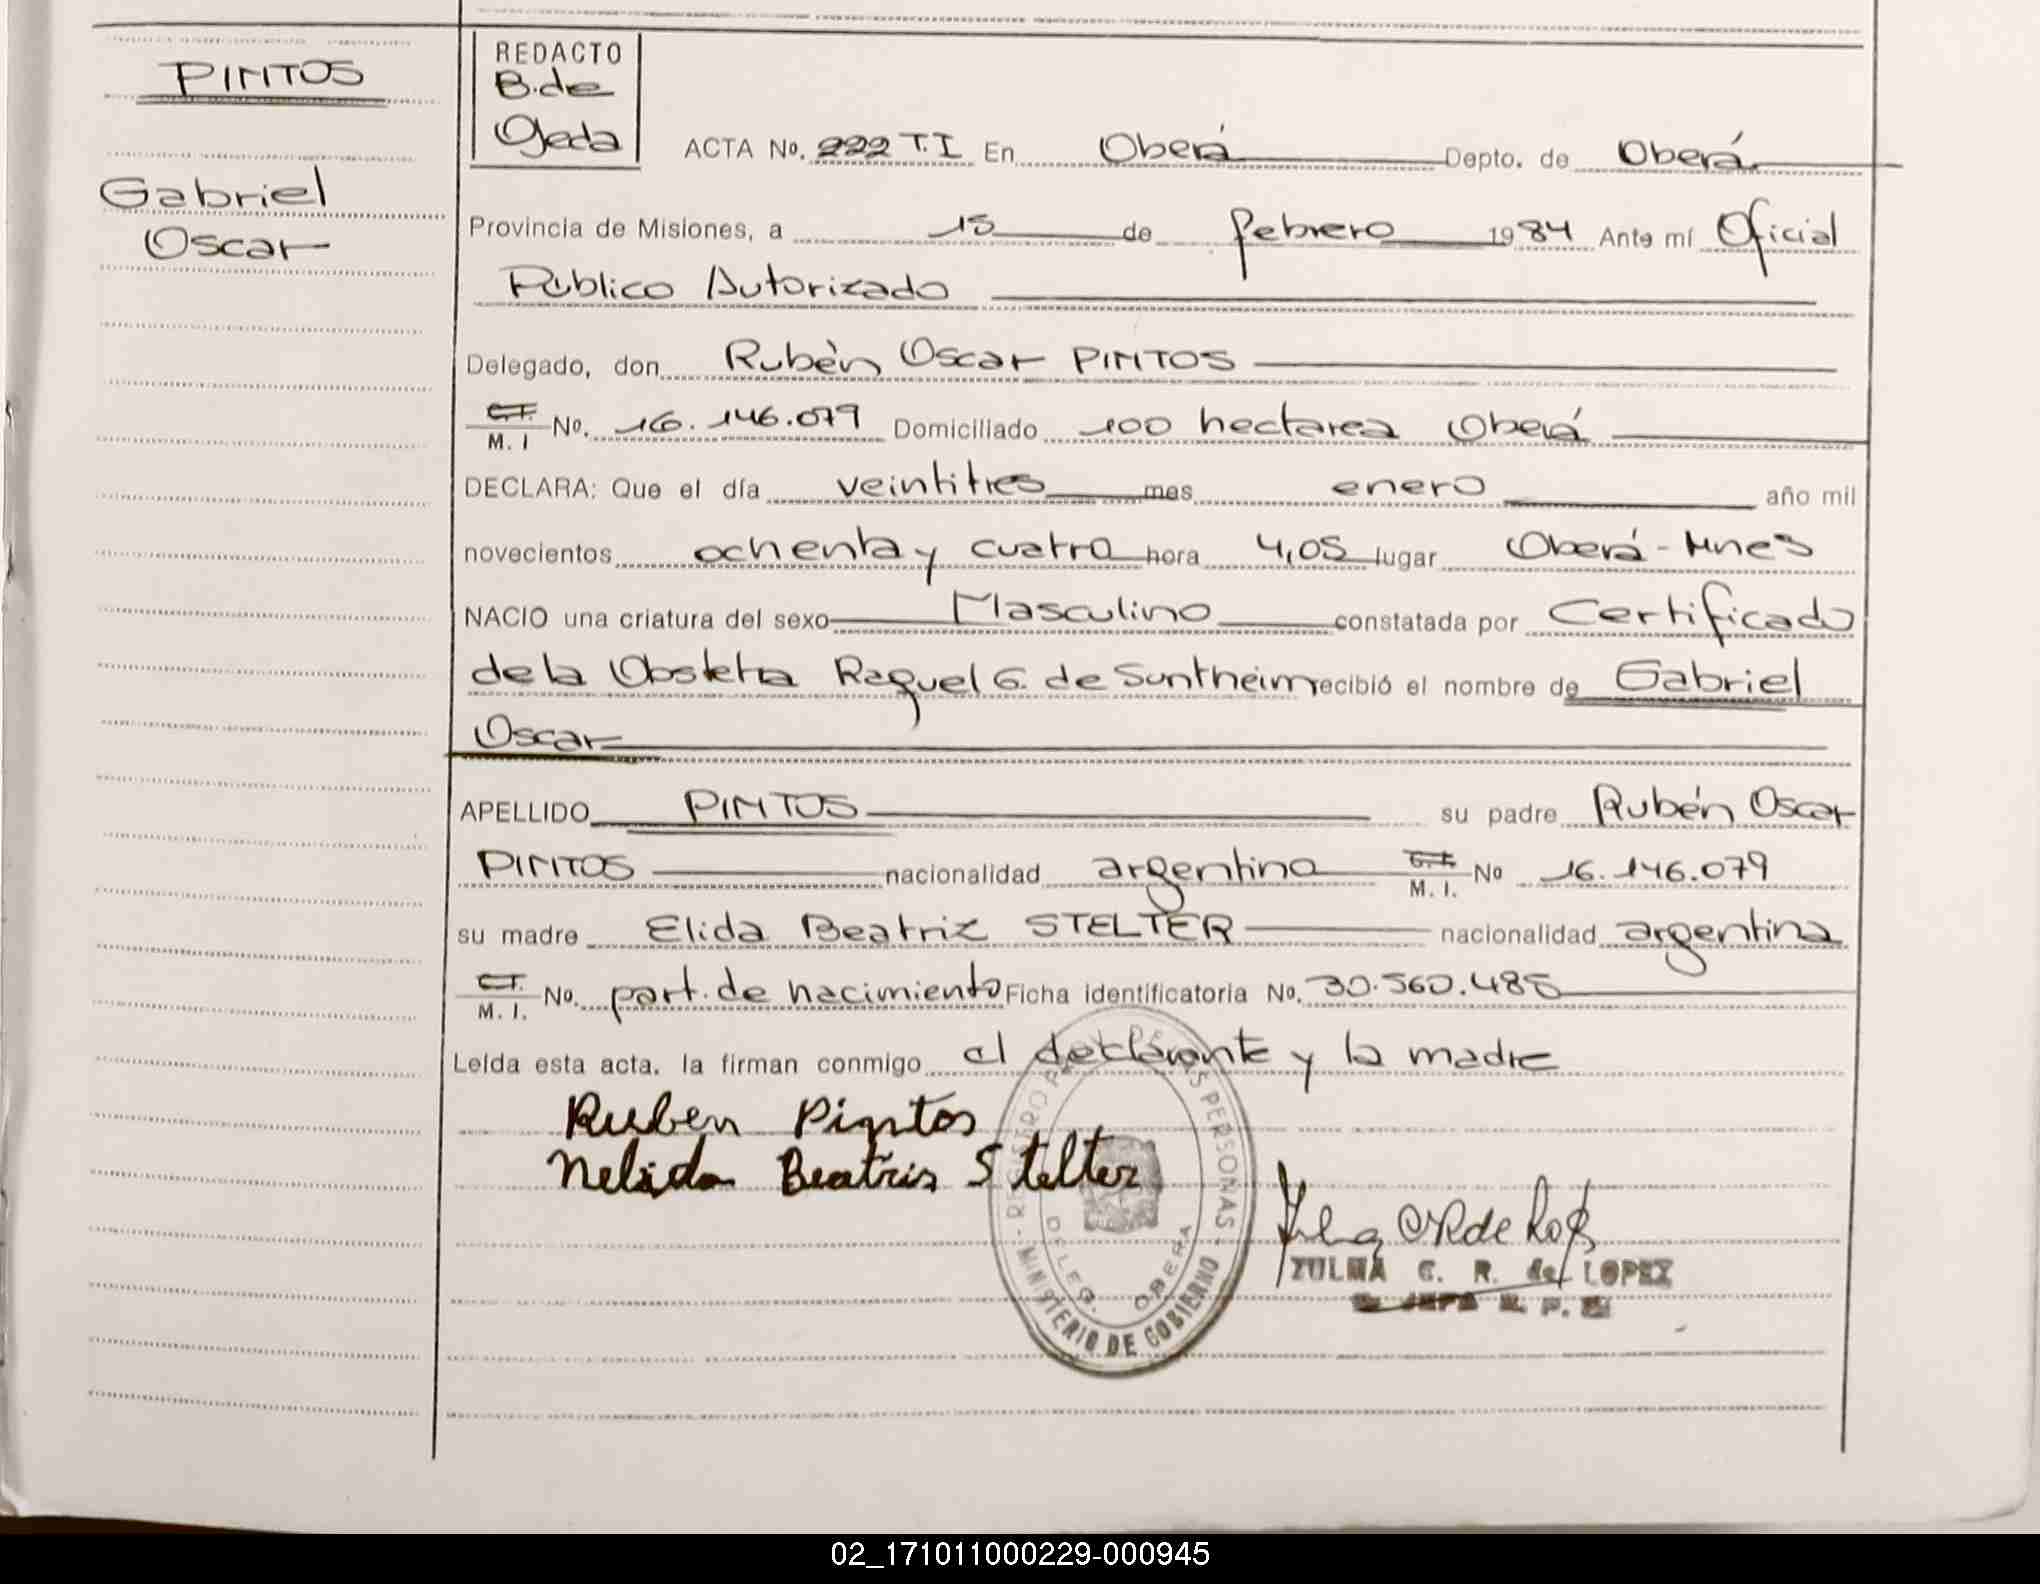 PINTOS
Gabriel
Oscar
REDACTO
B. de
Ojeda
ACTA No. 222 T. I En Oberá Depto. de Oberá
Provincia de Misiones, a 15 de febrero 1984 Ante mí Oficial
Público Autorizado
Delegado, don Rubén Oscar PINTOS
C.I.
M. I No. 16.146.079 Domiciliado 100 hectarea Oberá
DECLARA: Que el día veintitres mes enero año mil
novecientos ochenta y cuatro hora 4,05 lugar Oberá - Mnes
NACIO una criatura del sexo Masculino constatada por Certificado
de la Obstetra Raquel G. de Suntheim recibió el nombre de Gabriel
Oscar
APELLIDO PINTOS su padre Rubén Oscar
PINTOS nacionalidad argentino C.I.
M. I. No 16.146.079
su madre Elida Beatriz STELTER nacionalidad argentina
C.I.
M. I. No. part. de nacimiento Ficha identificatoria No. 30.560.485
Leída esta acta. la firman conmigo el declarante y la madre
Ruben Pintos
Nelida Beatris Stelter
MINISTERIO DE GOBIERNO
DELEG. OBERA
ZULMA C. R. de LOPEZ
02_171011000229-000945